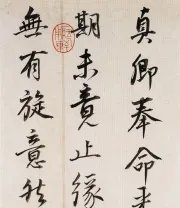 真卿奉命来
期未竟止缘
無有旋意然